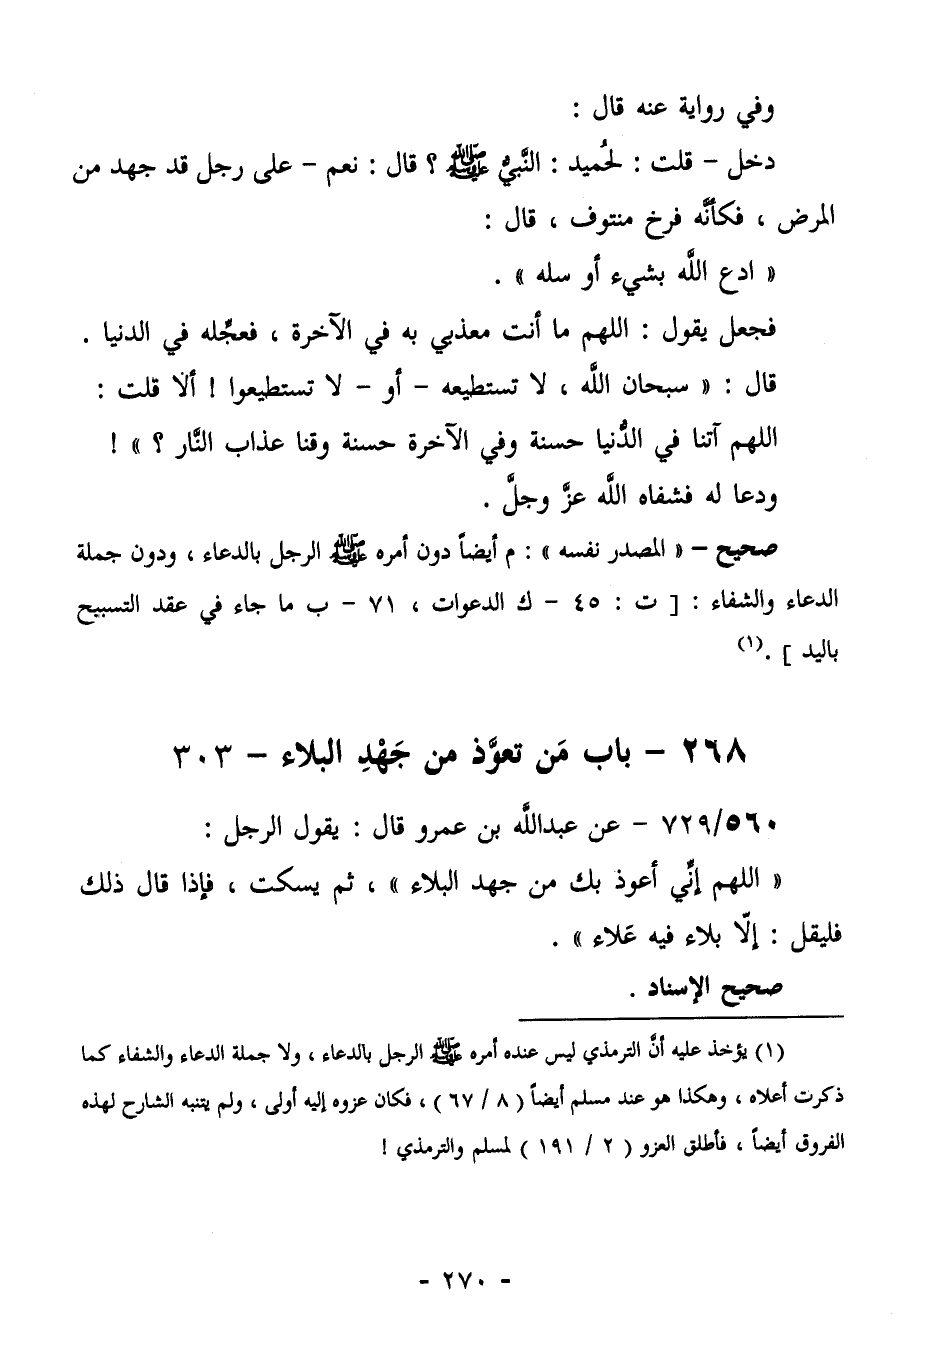 وفي رواية عنه قال :
دخل – قلت : لحُميد : النَّبيُّ ﷺ ؟ قال : نعم – على رجل قد جهد من
المرض ، فكأنَّه فرخ منتوف ، قال :
« ادع اللَّه بشيء أو سله » .
فجعل يقول : اللهم ما أنت معذبي به في الآخرة ، فعجِّله في الدنيا .
قال : « سبحان اللَّه ، لا تستطيعه – أو – لا تستطيعوا ! ألا قلت :
اللهم آتنا في الدُّنيا حسنة وفي الآخرة حسنة وقنا عذاب النَّار ؟ » !
ودعا له فشفاه اللَّه عزَّ وجلَّ .
صحيح – « المصدر نفسه » : م أيضاً دون أمره ﷺ الرجل بالدعاء ، ودون جملة
الدعاء والشفاء : [ ت : ٤٥ – ك الدعوات ، ٧١ – ب ما جاء في عقد التسبيح
باليد ] .(١)
٢٦٨ – باب مَن تعوَّذ من جَهْدِ البلاء – ٣٠٣
٧٢٩/٥٦٠ – عن عبداللَّه بن عمرو قال : يقول الرجل :
« اللهم إنِّي أعوذ بك من جهد البلاء » ، ثم يسكت ، فإذا قال ذلك
فليقل : إلّا بلاء فيه عَلاء » .
صحيح الإسناد .
(١) يؤخذ عليه أنَّ الترمذي ليس عنده أمره ﷺ الرجل بالدعاء ، ولا جملة الدعاء والشفاء كما
ذكرت أعلاه ، وهكذا هو عند مسلم أيضاً ( ٨ / ٦٧ ) ، فكان عزوه إليه أولى ، ولم يتنبه الشارح لهذه
الفروق أيضاً ، فأطلق العزو ( ٢ / ١٩١ ) لمسلم والترمذي !
- ٢٧٠ -